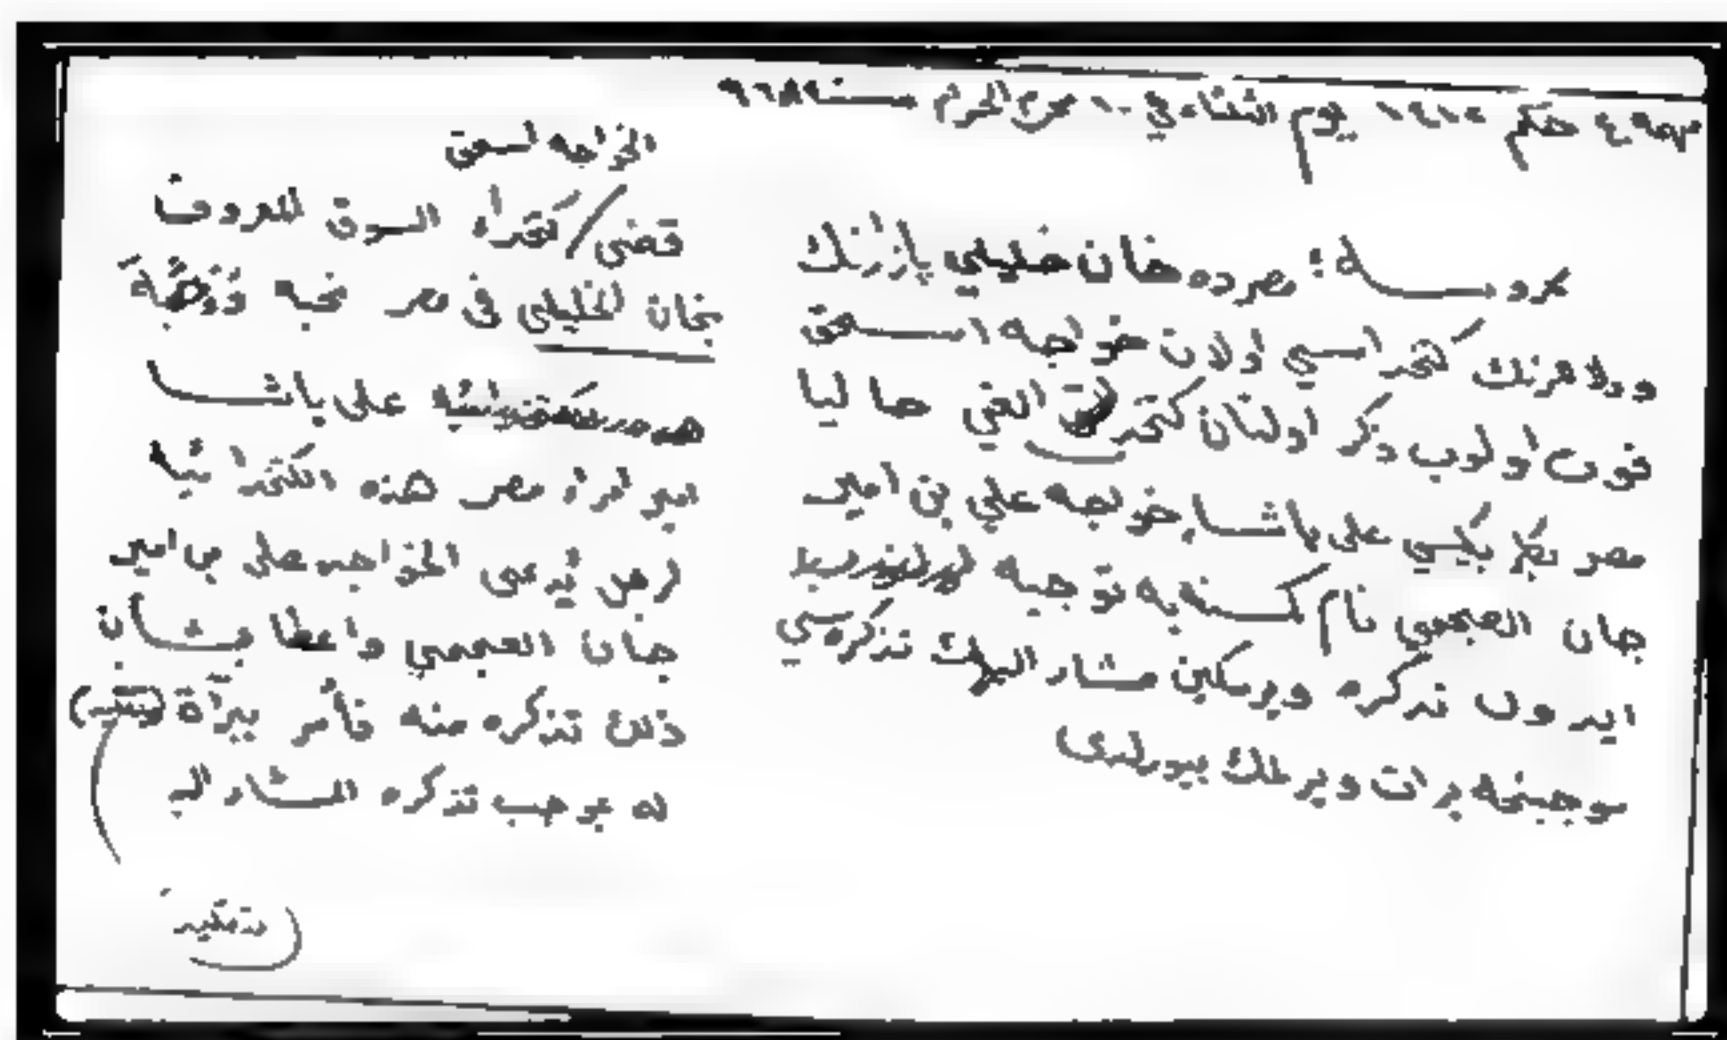 مهمه ٤ حكم ١٤١٤ يوم الثناء في ١٠ محرم الحرام سنة ٩٦٨
مصرده خان خليلي پازارنك
كتخداسي اولان خواجه اسحق
فوت اولوب ذكر اولنان كتخدالق الفي حاليا
مصر بكلربكيسي على پاشا خواجه علي بن امير
جان العجمي نام كسنه يه توجيه
ايدوب تذكره ويرمكين مشار اليهك تذكره سي
موجبنجه برات ويرملك بيورلدى
الخواجه اسحق
قضى كتخداء السوق المعروف
بخان الخليلى فى مصر نحبه
على باشا
امير امراء مصر هذه
لرجل يدعى الخواجه على بن امير
جان العجمي واعطا بشان
ذلك تذكره منه فأمر ببرآة (بتقليد)
له بموجب تذكره المشار اليه
بتقليد